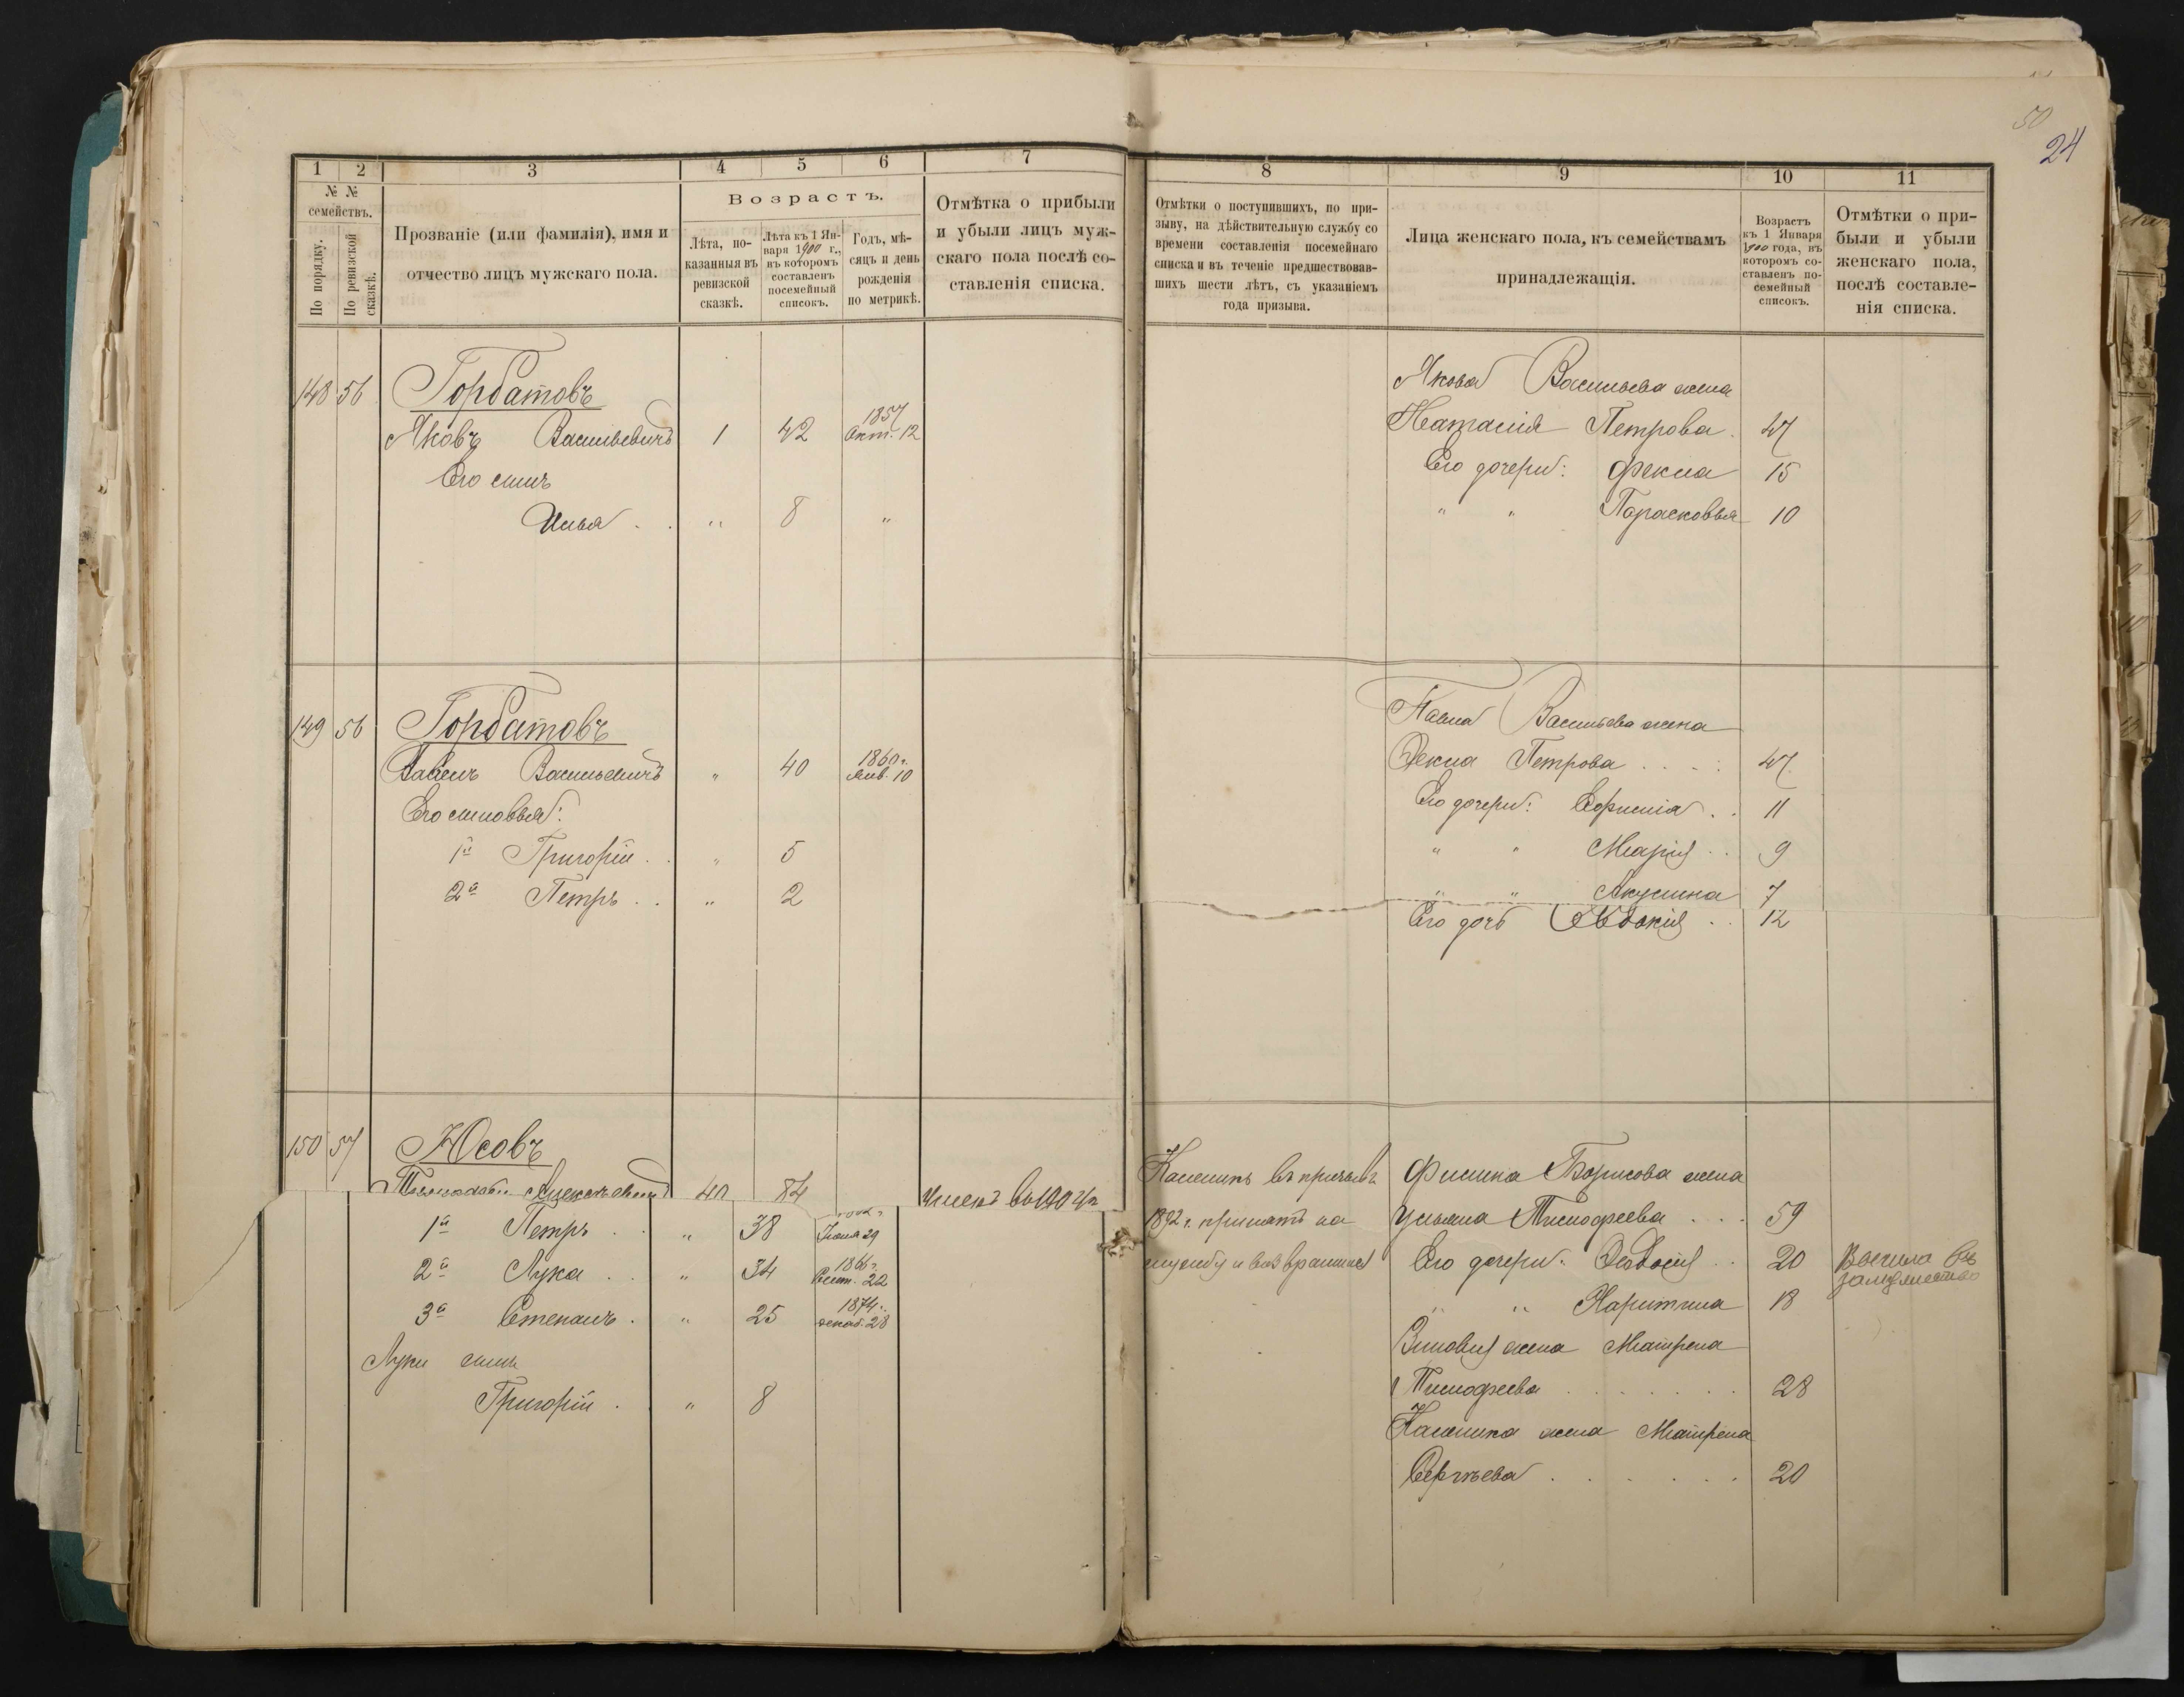 50
24
1 2 3 4 5 6 7
№ № семействъ.
По порядку.
По ревизской сказкѣ.
Прозваніе (или фамилія), имя и
отчество лицъ мужскаго пола.
Возрастъ.
Лѣта, по-
казанныя въ
ревизской
сказкѣ.
Лѣта къ 1 Ян-
варя 1900 г.,
въ которомъ
составленъ
посемейный
списокъ.
Годъ, мѣ-
сяцъ и день
рожденія
по метрикѣ.
Отмѣтка о прибыли
и убыли лицъ муж-
скаго пола послѣ со-
ставленія списка.
148 56 Горбатовъ
Яковъ Васильевичъ 1 42 1857 Окт. 12
Его сынъ
Илья . . " 8 "
149 56 Горбатовъ
Павелъ Васильевичъ " 40 1860 г. Янв. 10
Его сыновья:
1й Григорій . . " 5
2й Петръ . . " 2
150 57 Юсовъ
40 84
1й Петръ . . " 38 29
2й Лука . . " 34 1866 г. Сент. 22
3й Степанъ . " 25 1874 г. декаб. 28
Луки сынъ
Григорій . " 8
8 9 10 11
Отмѣтки о поступившихъ, по при-
зыву, на дѣйствительную службу со
времени составленія посемейнаго
списка и въ теченіе предшествовав-
шихъ шести лѣтъ, съ указаніемъ
года призыва.
Лица женскаго пола, къ семействамъ
принадлежащія.
Возрастъ
къ 1 Января
1900 года, въ
которомъ со-
ставленъ по-
семейный
списокъ.
Отмѣтки о при-
были и убыли
женскаго пола,
послѣ составле-
нія списка.
Якова Васильева жена
Наталія Петрова . 47
Его дочери: Фекла 15
" " Парасковья 10
Павла Васильева жена
Фекла Петрова . . . . 47
Его дочери: Ефимія . . 11
" " Марія . . 9
" " Акулина 7
Его дочь Авдокія . . 12
Калешикъ въ призывъ
1892 г. принятъ на
службу и возвратился
Филипа Борисова жена
Ульяна Тимофеева . . . 59
Его дочери: Федосія . . 20 Вышла въ
замужество
" " Харитина 18
Зиновія жена Матрена
Тимофеева . . . . . . . 28
жена Матрена
Сергѣева . . . . . . . 20